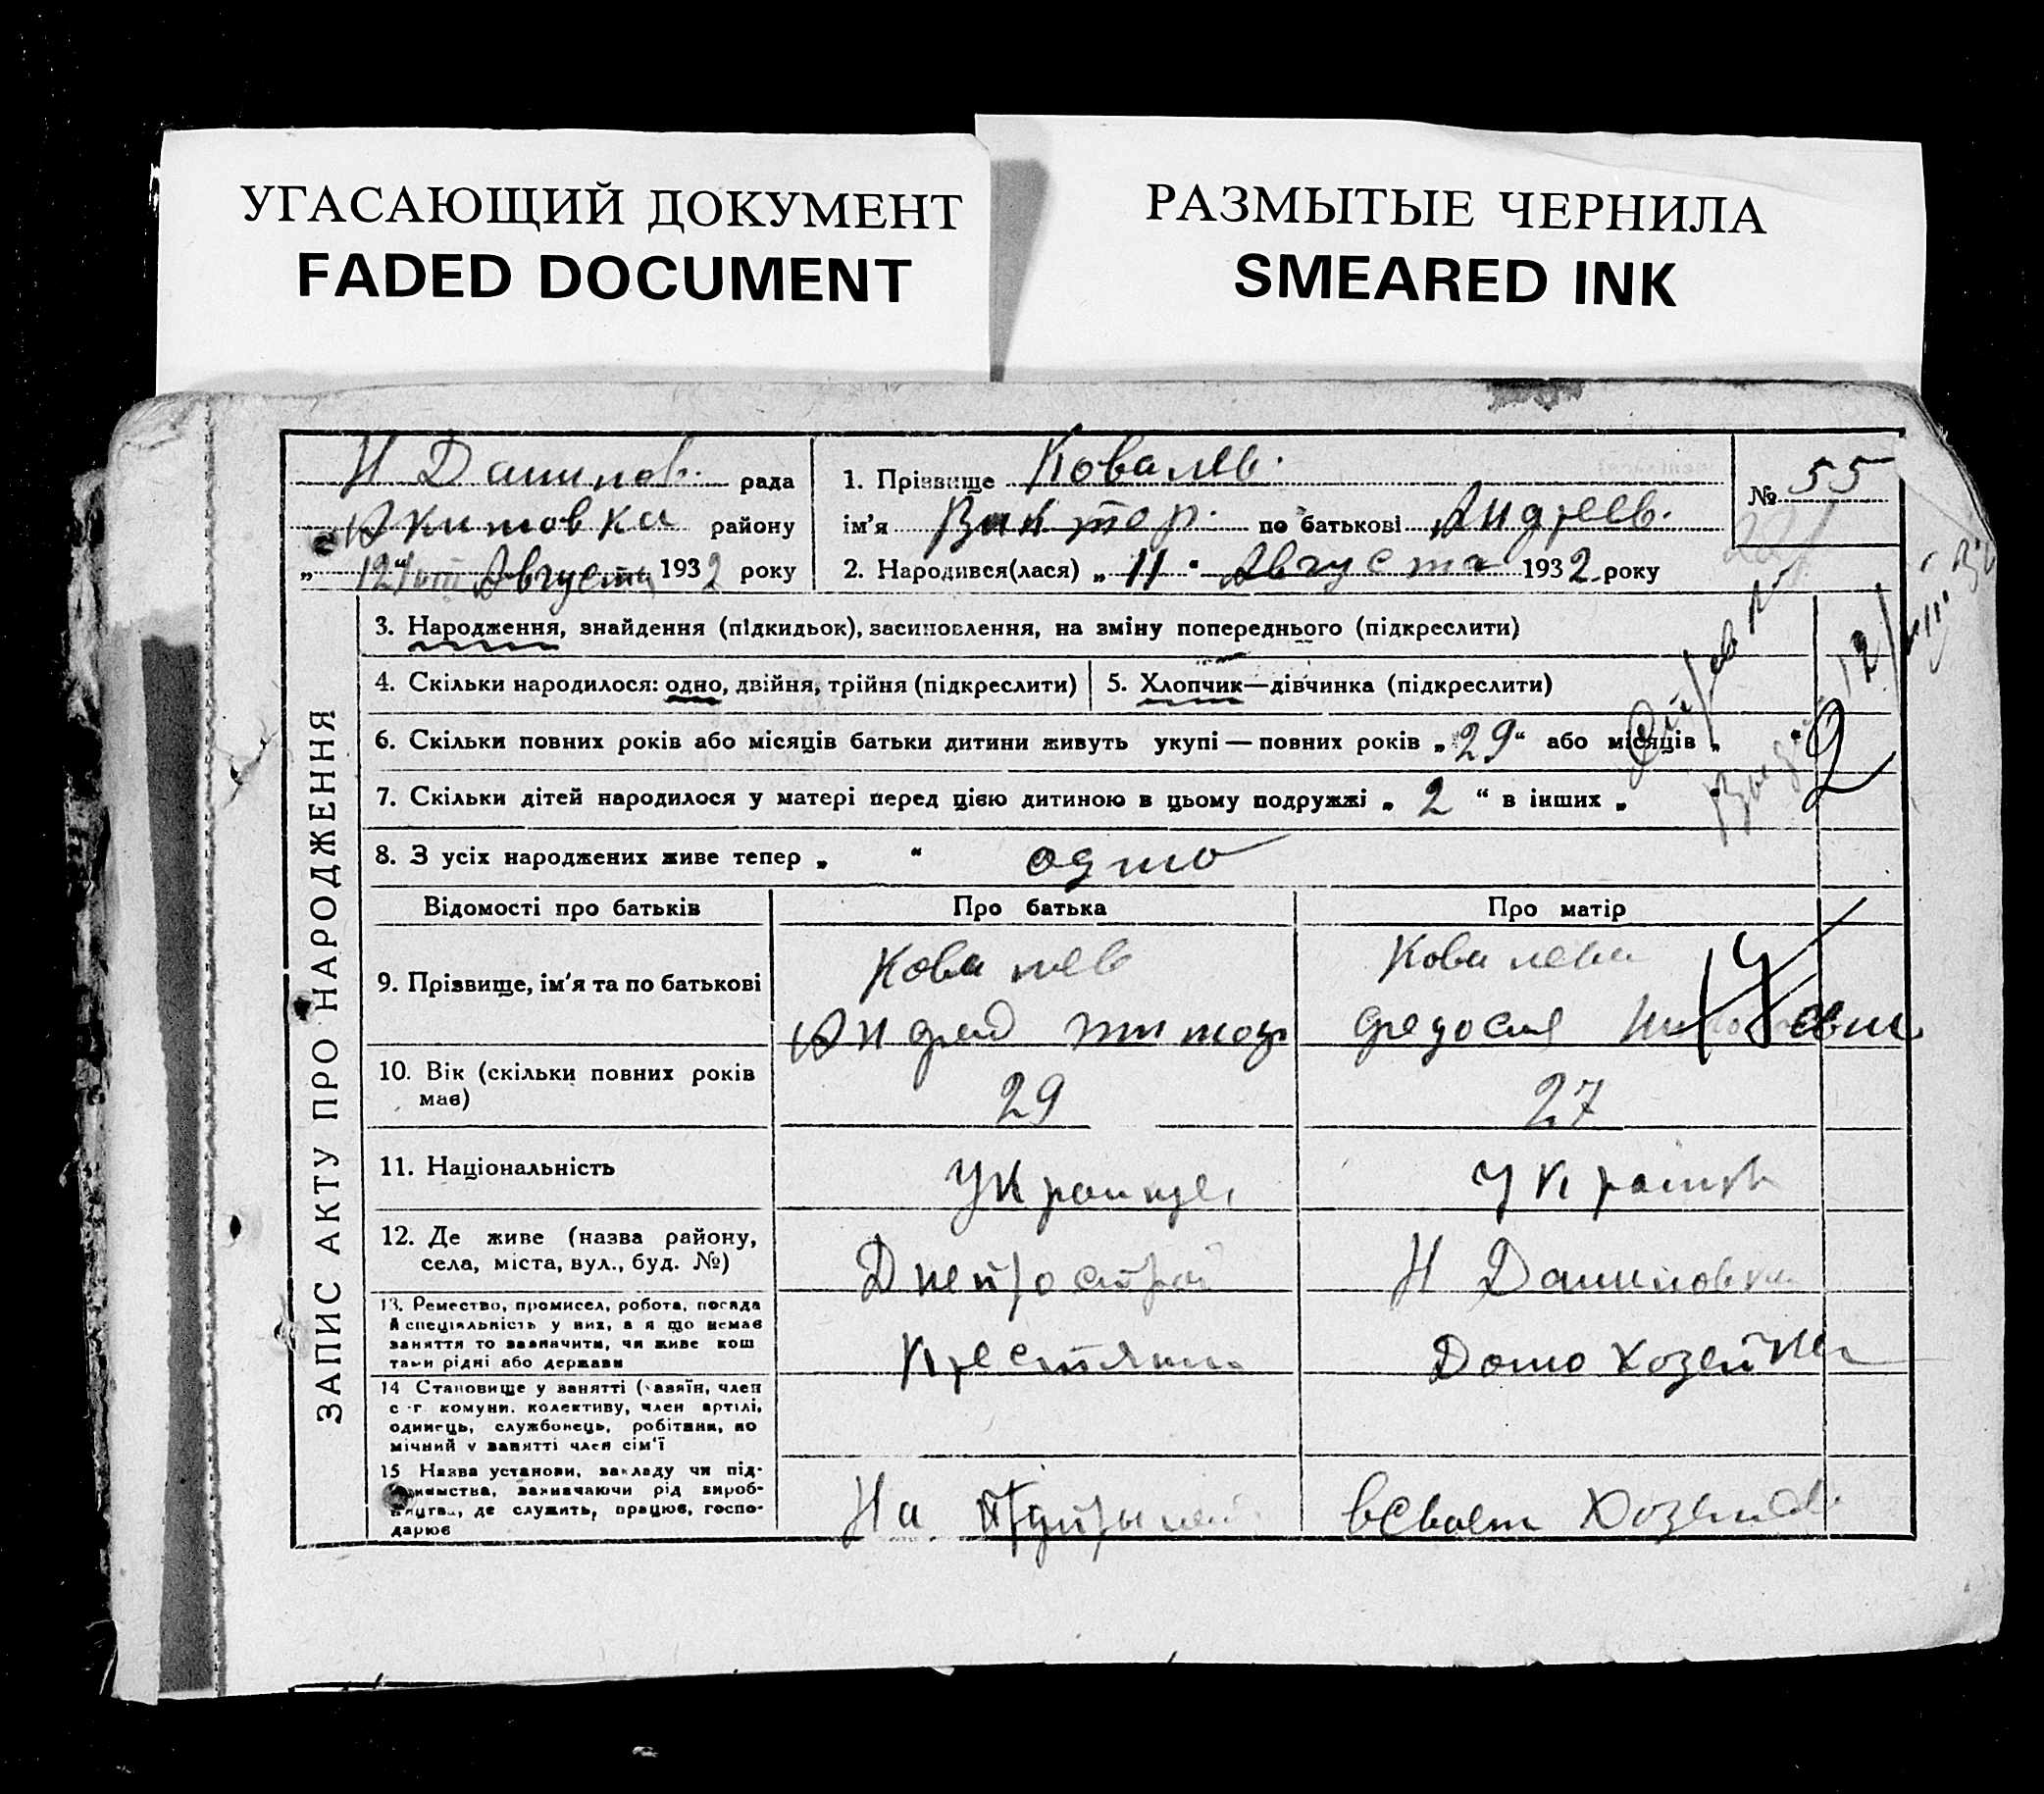 УГАСАЮЩИЙ ДОКУМЕНТ
FADED DOCUMENT
РАЗМЫТЫЕ ЧЕРНИЛА
SMEARED INK
Н Данилов. рада
Акимовка району
„ 12 " Августа 1932 року
1. Прізвище Ковалев.
ім'я Виктор. по батькові Андреев.
2. Народився(лася) „ 11 " Августа 1932 року
№ 55
ЗАПИС АКТУ ПРО НАРОДЖЕННЯ
3. Народження, знайдення (підкидьок), засиновлення, на зміну попереднього (підкреслити)
4. Скільки народилося: одно, двійня, трійня (підкреслити)
5. Хлопчик—дівчинка (підкреслити)
6. Скільки повних років або місяців батьки дитини живуть укупі — повних років „ 29 “ або місяців „
7. Скільки дітей народилося у матері перед цією дитиною в цьому подружжі „ 2 “ в інших „
8. З усіх народжених живе тепер „ “ одно
2
12/VIII
Відомості про батьків
Про батька
Про матір
9. Прізвище, ім'я та по батькові
Ковалев
Андрей Тимоф
Ковалева
Федосия
10. Вік (скільки повних років має)
29
27
11. Національність
Украинце,
Украинк
12. Де живе (назва району,
села, міста, вул., буд. №)
Днепрострой
Н Даниловка
13. Ремество, промисел, робота, посада
й спеціяльність у них, а я що немає
заняття то зазначити, чи живе кош
тами рідні або держави
Крестянин
Домохозейка
14 Становище у занятті (хазяїн, член
с-г комуни. колективу, член артілі,
одинець, службонець, робітник, по
мічний у занятті член сім'ї
15 Назва установи, закладу чи під-
приємства, зазначаючи рід вироб-
ництва, де служить, працює, госпо-
дарює
На
всвоем Хозяйстве